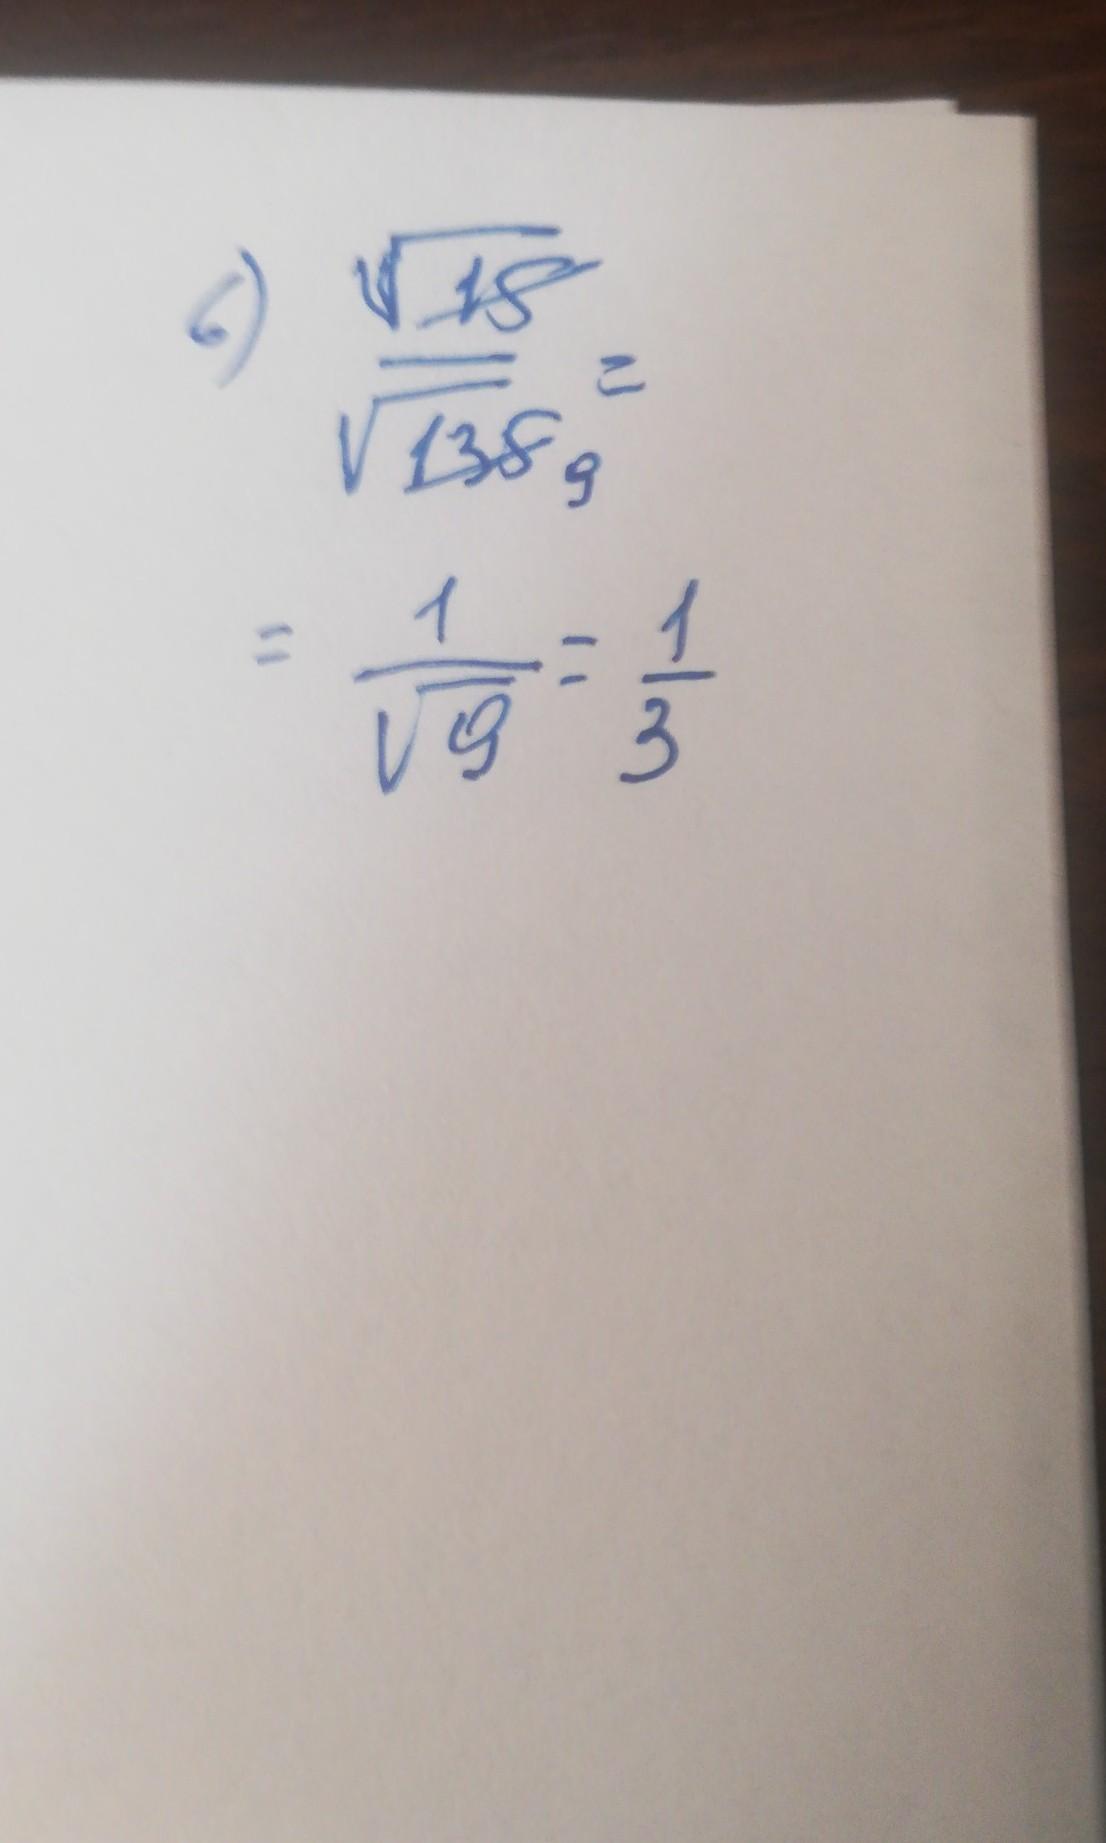 б) √15
/ √135 9 =
= 1/√9 = 1/3